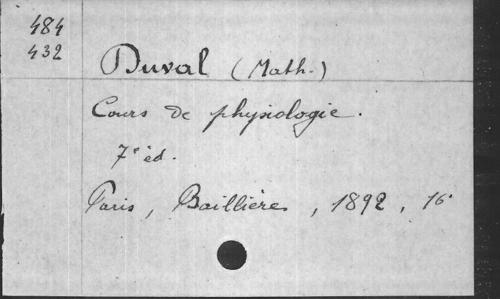 484
432
Duval (Math.)
Cours de physiologie.
7e éd.
Paris, Baillières, 1892, 16°